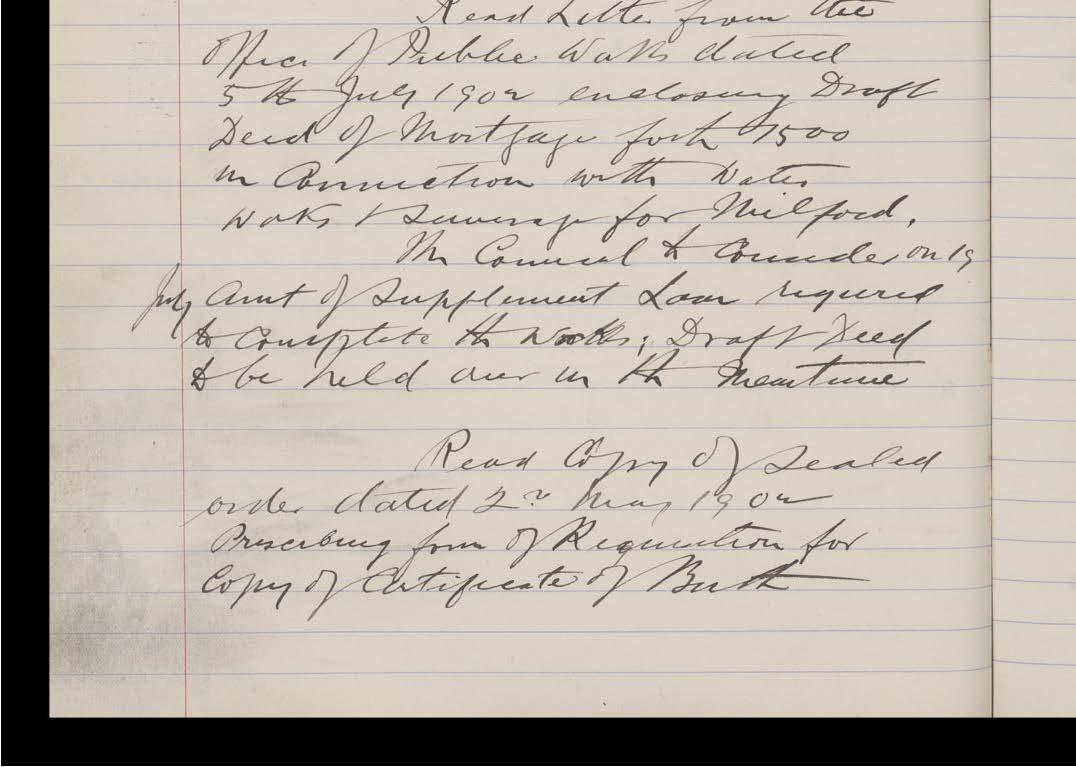 Read Letter from the
Office of Public Works dated
5th July 1902 enclosing Draft
Deed of Mortgage for £1500
in Connection with Water
works & Sewerage for Milford.
The Council to Consider on 19
July Amt of Supplement Loan required
to Complete the Works; Draft Deed
to be held over in the Meantime
Read Copy of Sealed
order dated 2nd May 1902
Prescribing form of Requisition for
Copy of Certificate of Birth